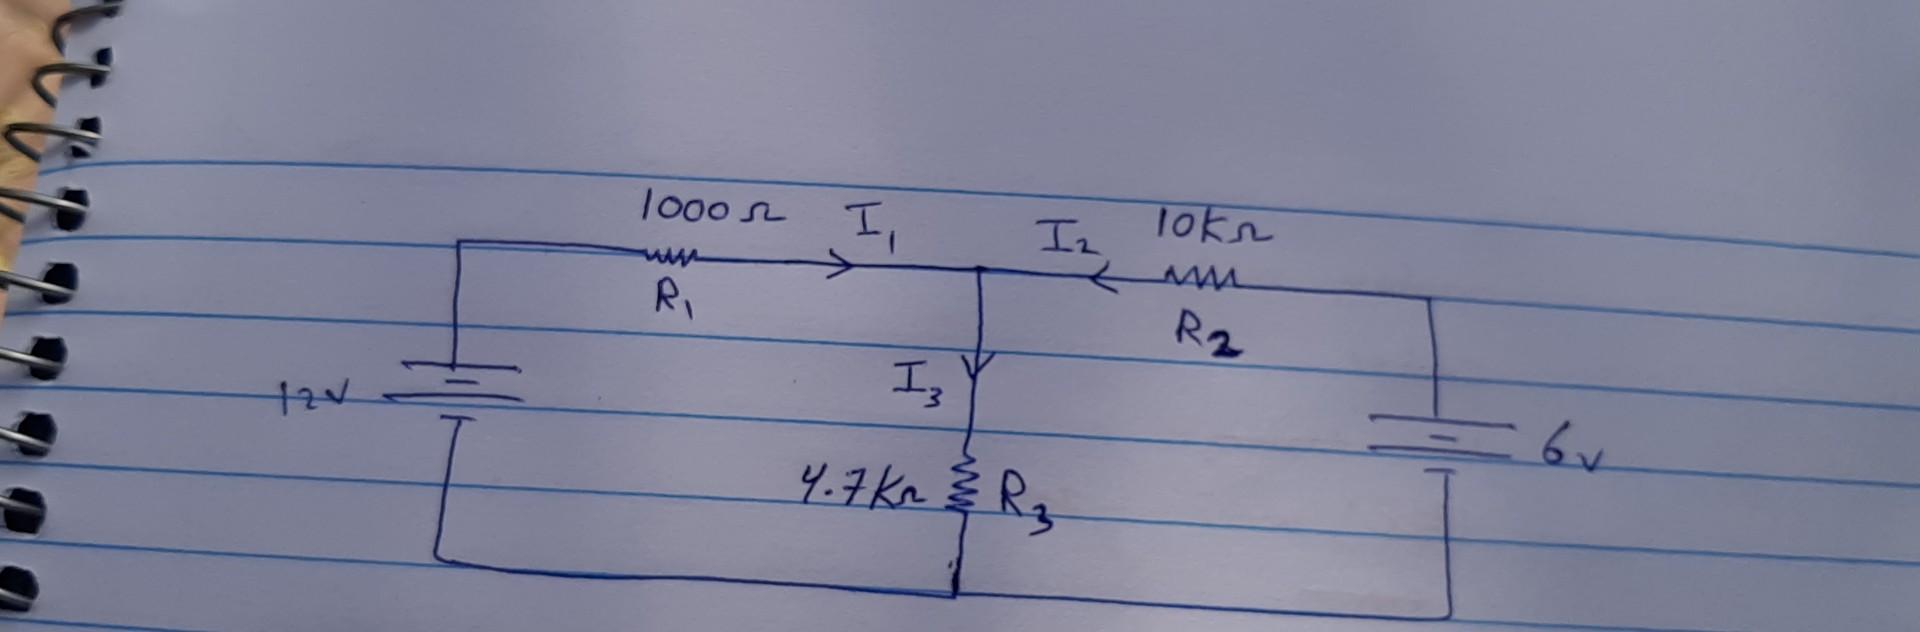 1000 Ω I₁ I₂ 10KΩ
R₁ R₂
12V I₃ 6V
4.7KΩ R₃